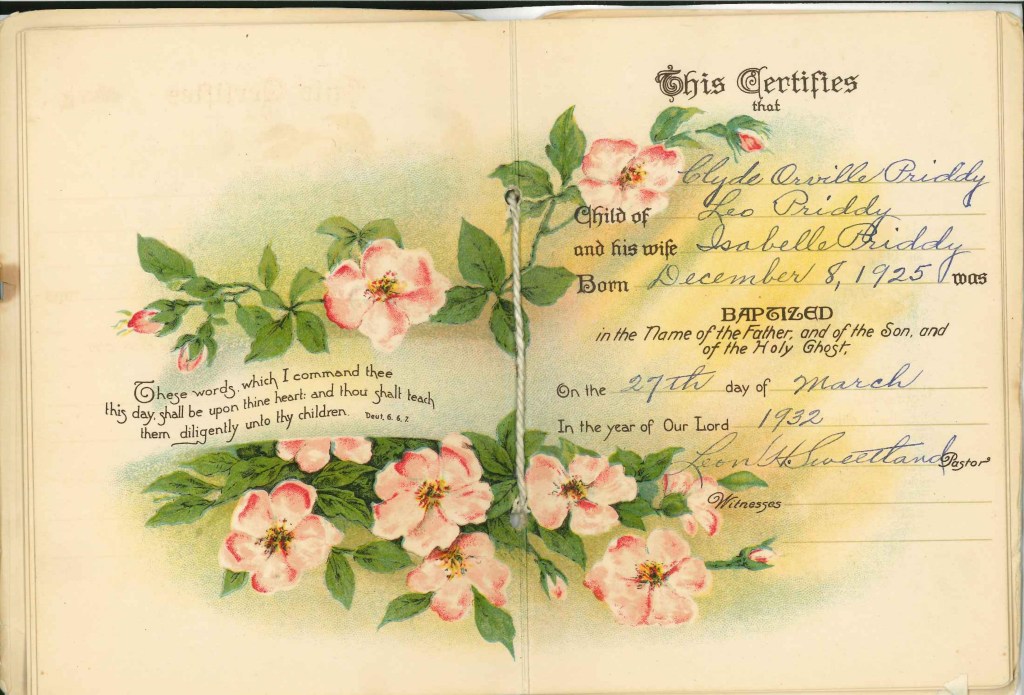 These words, which I command thee
this day, shall be upon thine heart: and thou shalt teach
them diligently unto thy children. Deut. 6. 6. 7.
This Certifies
that
Clyde Orville Priddy
Child of Leo Priddy
and his wife Isabelle Priddy
Born December 8, 1925 was
BAPTIZED
in the Name of the Father, and of the Son, and
of the Holy Ghost,
On the 27th day of March
In the year of Our Lord 1932
Leon H. Sweetland Pastor
Witnesses